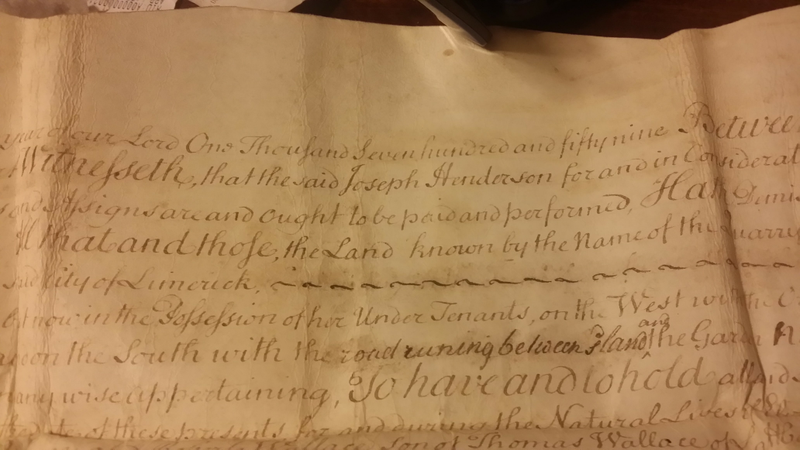 year of our Lord One Thousand Seven hundred and fifty nine Betwee
Witnesseth, that the said Joseph Henderson for and in Considerat
and Assigns are and ought to be paid and performed, Hath Demis
All that and those, the Land known by the Name of the Quarry
City of Limerick,
now in the Possession of her Under Tenants, on the West with the
on the South with the road runing between sd land and the Garden
any wise appertaining, To have and to hold all and
date of these presents for and during the Natural Lives of
Wallace Son of Thomas Wallace of